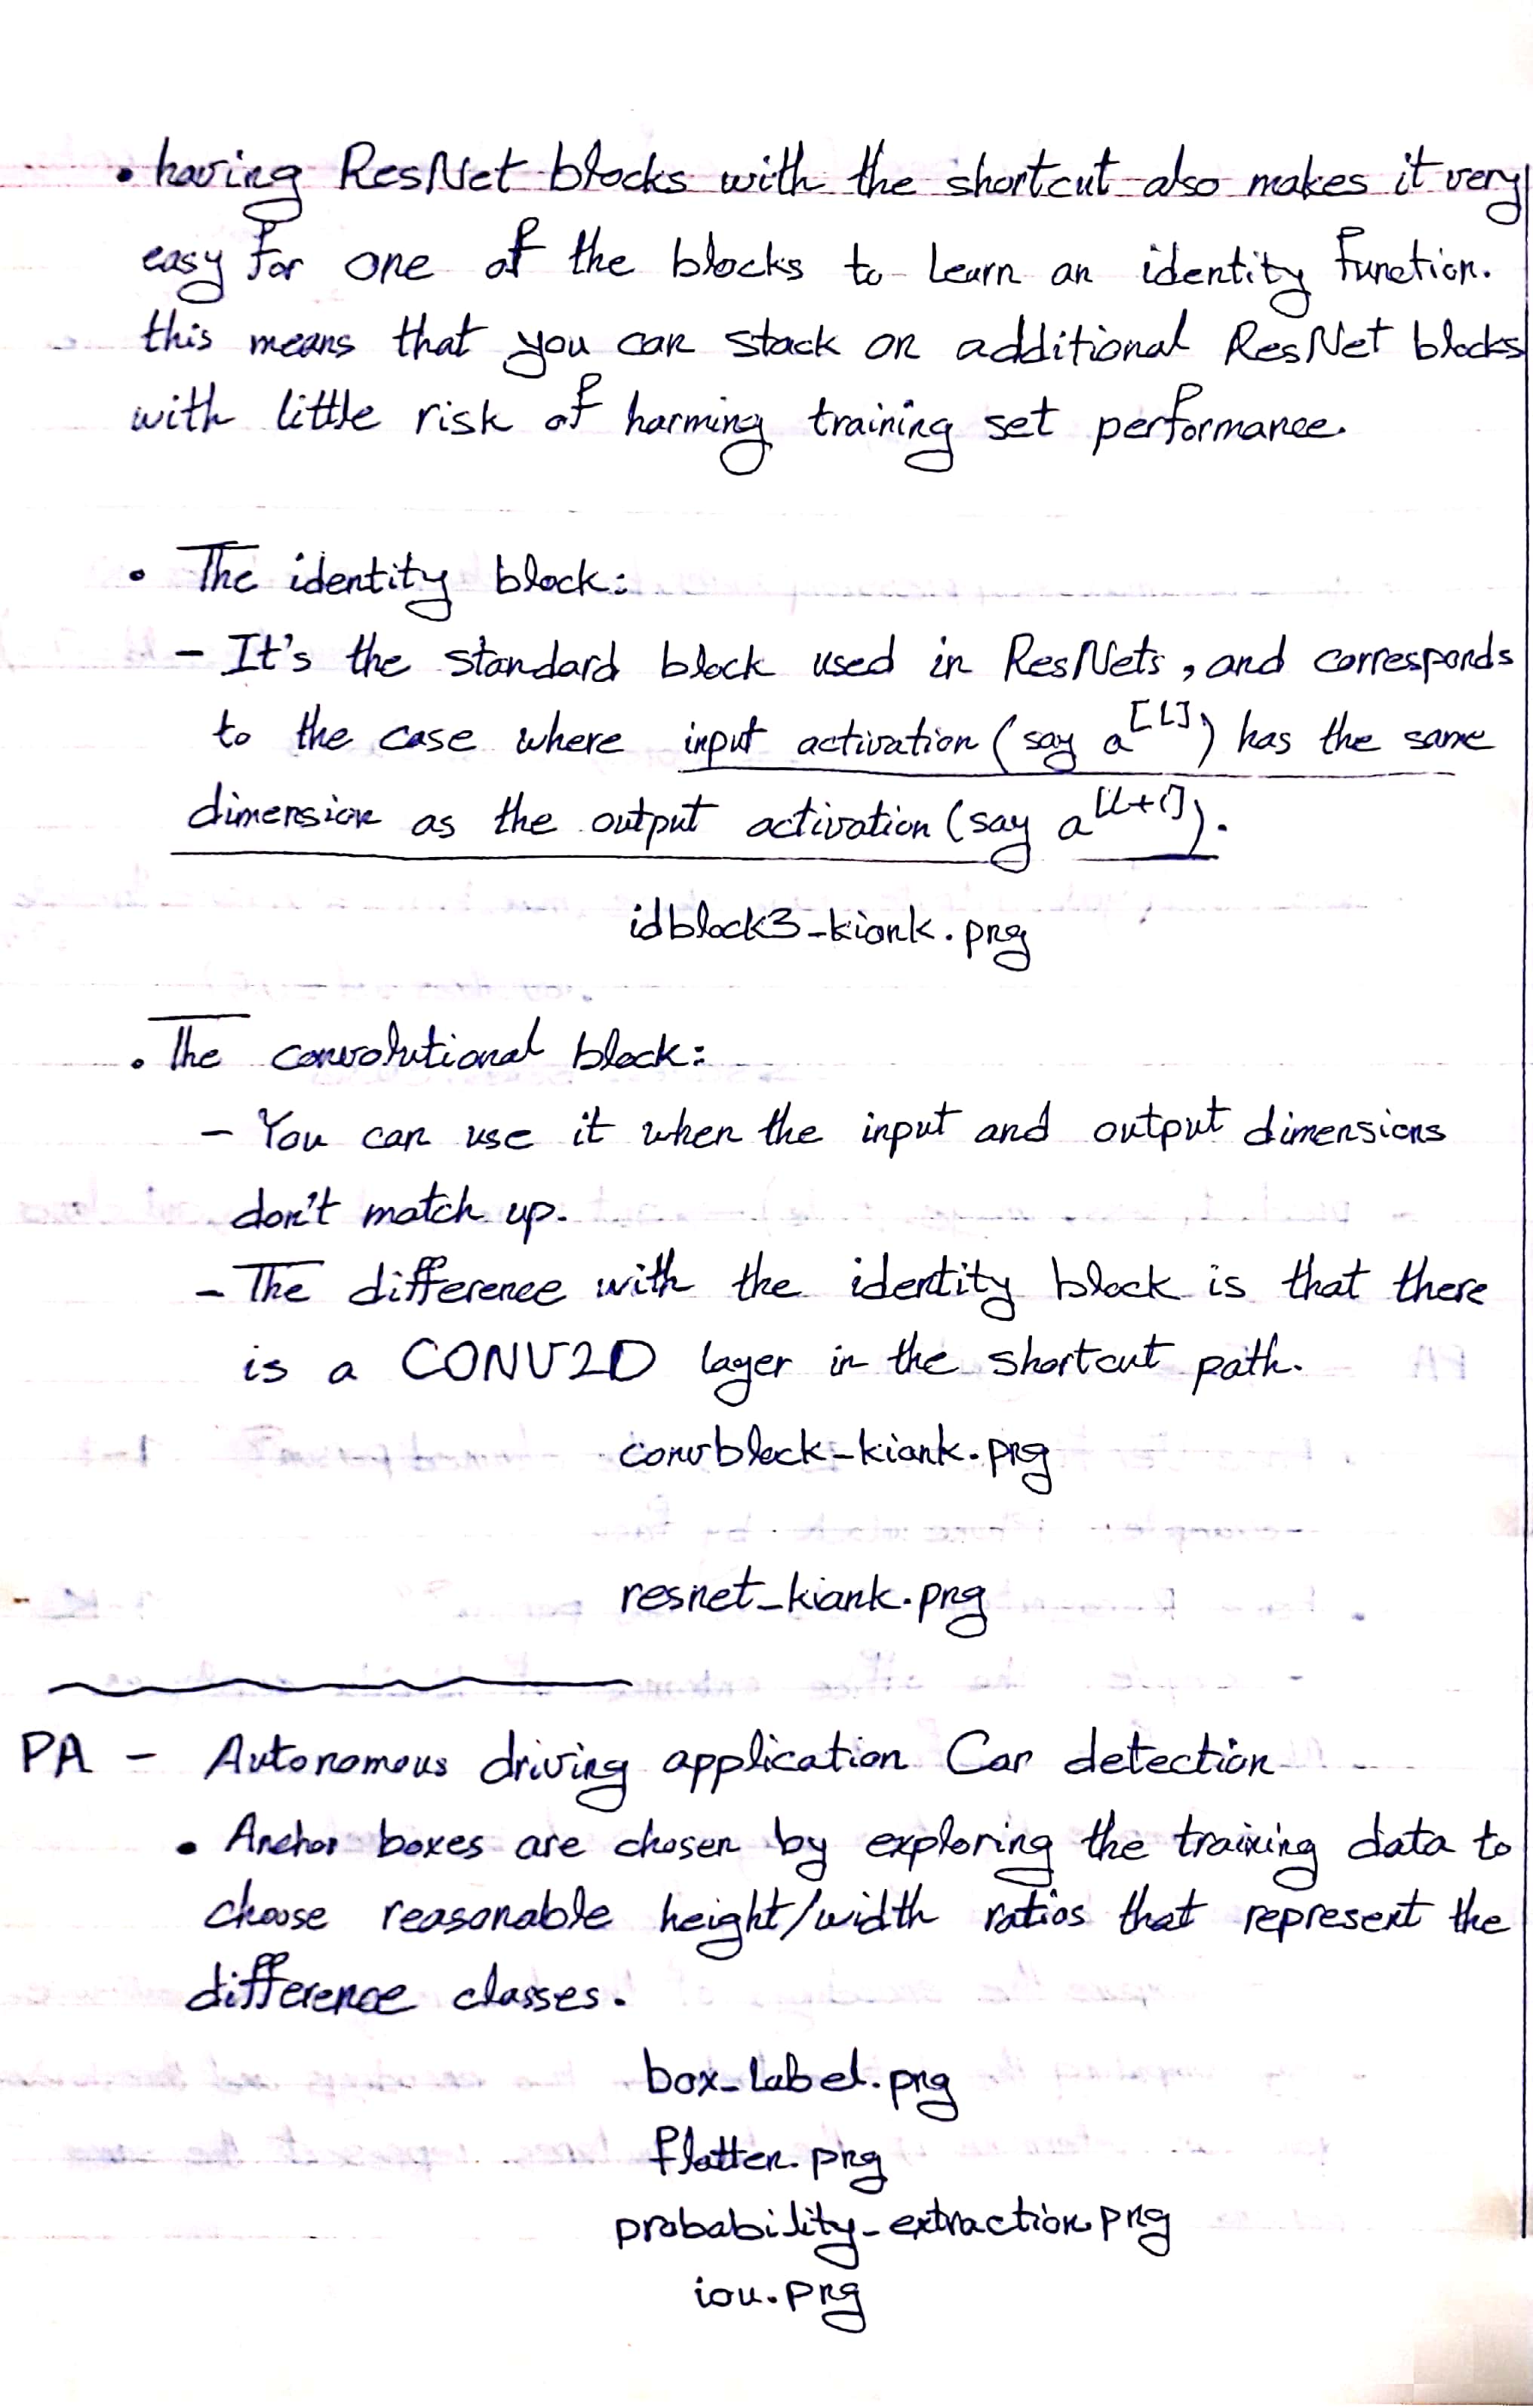 • having ResNet blocks with the shortcut also makes it very
easy for one of the blocks to learn an identity function.
this means that you can stack on additional ResNet blocks
with little risk of harming training set performance.
• The identity block:
- It's the standard block used in ResNets, and corresponds
to the case where input activation (say a^[L]) has the same
dimension as the output activation (say a^[L+1]).
idblock3_kiank.png
• The convolutional block:
- You can use it when the input and output dimensions
don't match up.
- The difference with the identity block is that there
is a CONV2D layer in the shortcut path.
convblock_kiank.png
resnet_kiank.png
PA - Autonomous driving application Car detection
• Anchor boxes are chosen by exploring the training data to
choose reasonable height/width ratios that represent the
difference classes.
box_label.png
flatten.png
probability_extraction.png
iou.png